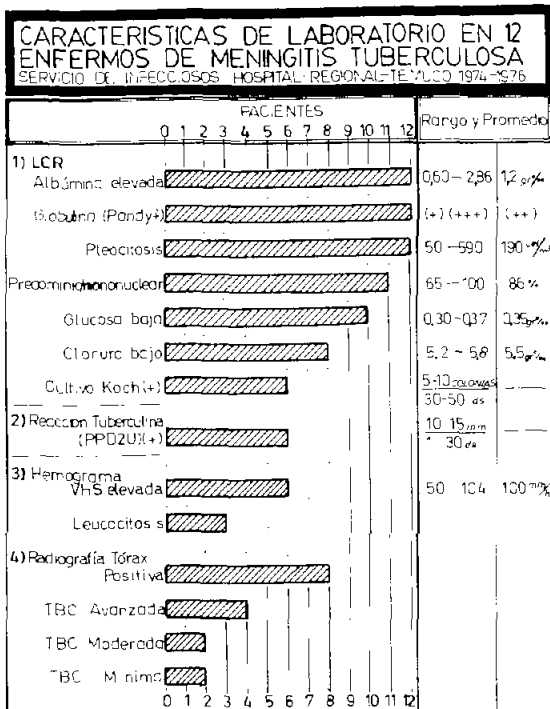 CARACTERISTICAS DE LABORATORIO EN 12
ENFERMOS DE MENINGITIS TUBERCULOSA
SERVICIO DE INFECCIOSOS HOSPITAL REGIONAL-TEMUCO 1974-1976
PACIENTES
Rango y Promedio
0 1 2 3 4 5 6 7 8 9 10 11 12
1) LCR
Albúmina elevada 0,60 - 2,86 1,2 gr‰
Globulina (Pandy+) (+) (+++) (++)
Pleocitosis 50 - 590 190
Predominio mononuclear 65 - 100 86 %
Glucosa baja 0,30 - 0,37 0,35 gr‰
Cloruro bajo 5,2 - 5,8 5,5 gr‰
Cultivo Koch (+) 5-10 colonias
30-50 ds
2) Reaccion Tuberculina 10 15 mm
(PPD2U)(+) 30 ds
3) Hemograma
VHS elevada 50 104 100
Leucocitos s
4) Radiografía Tórax
Positiva
TBC Avanzada
TBC Moderada
TBC Minima
0 1 2 3 4 5 6 7 8 9 10 11 12